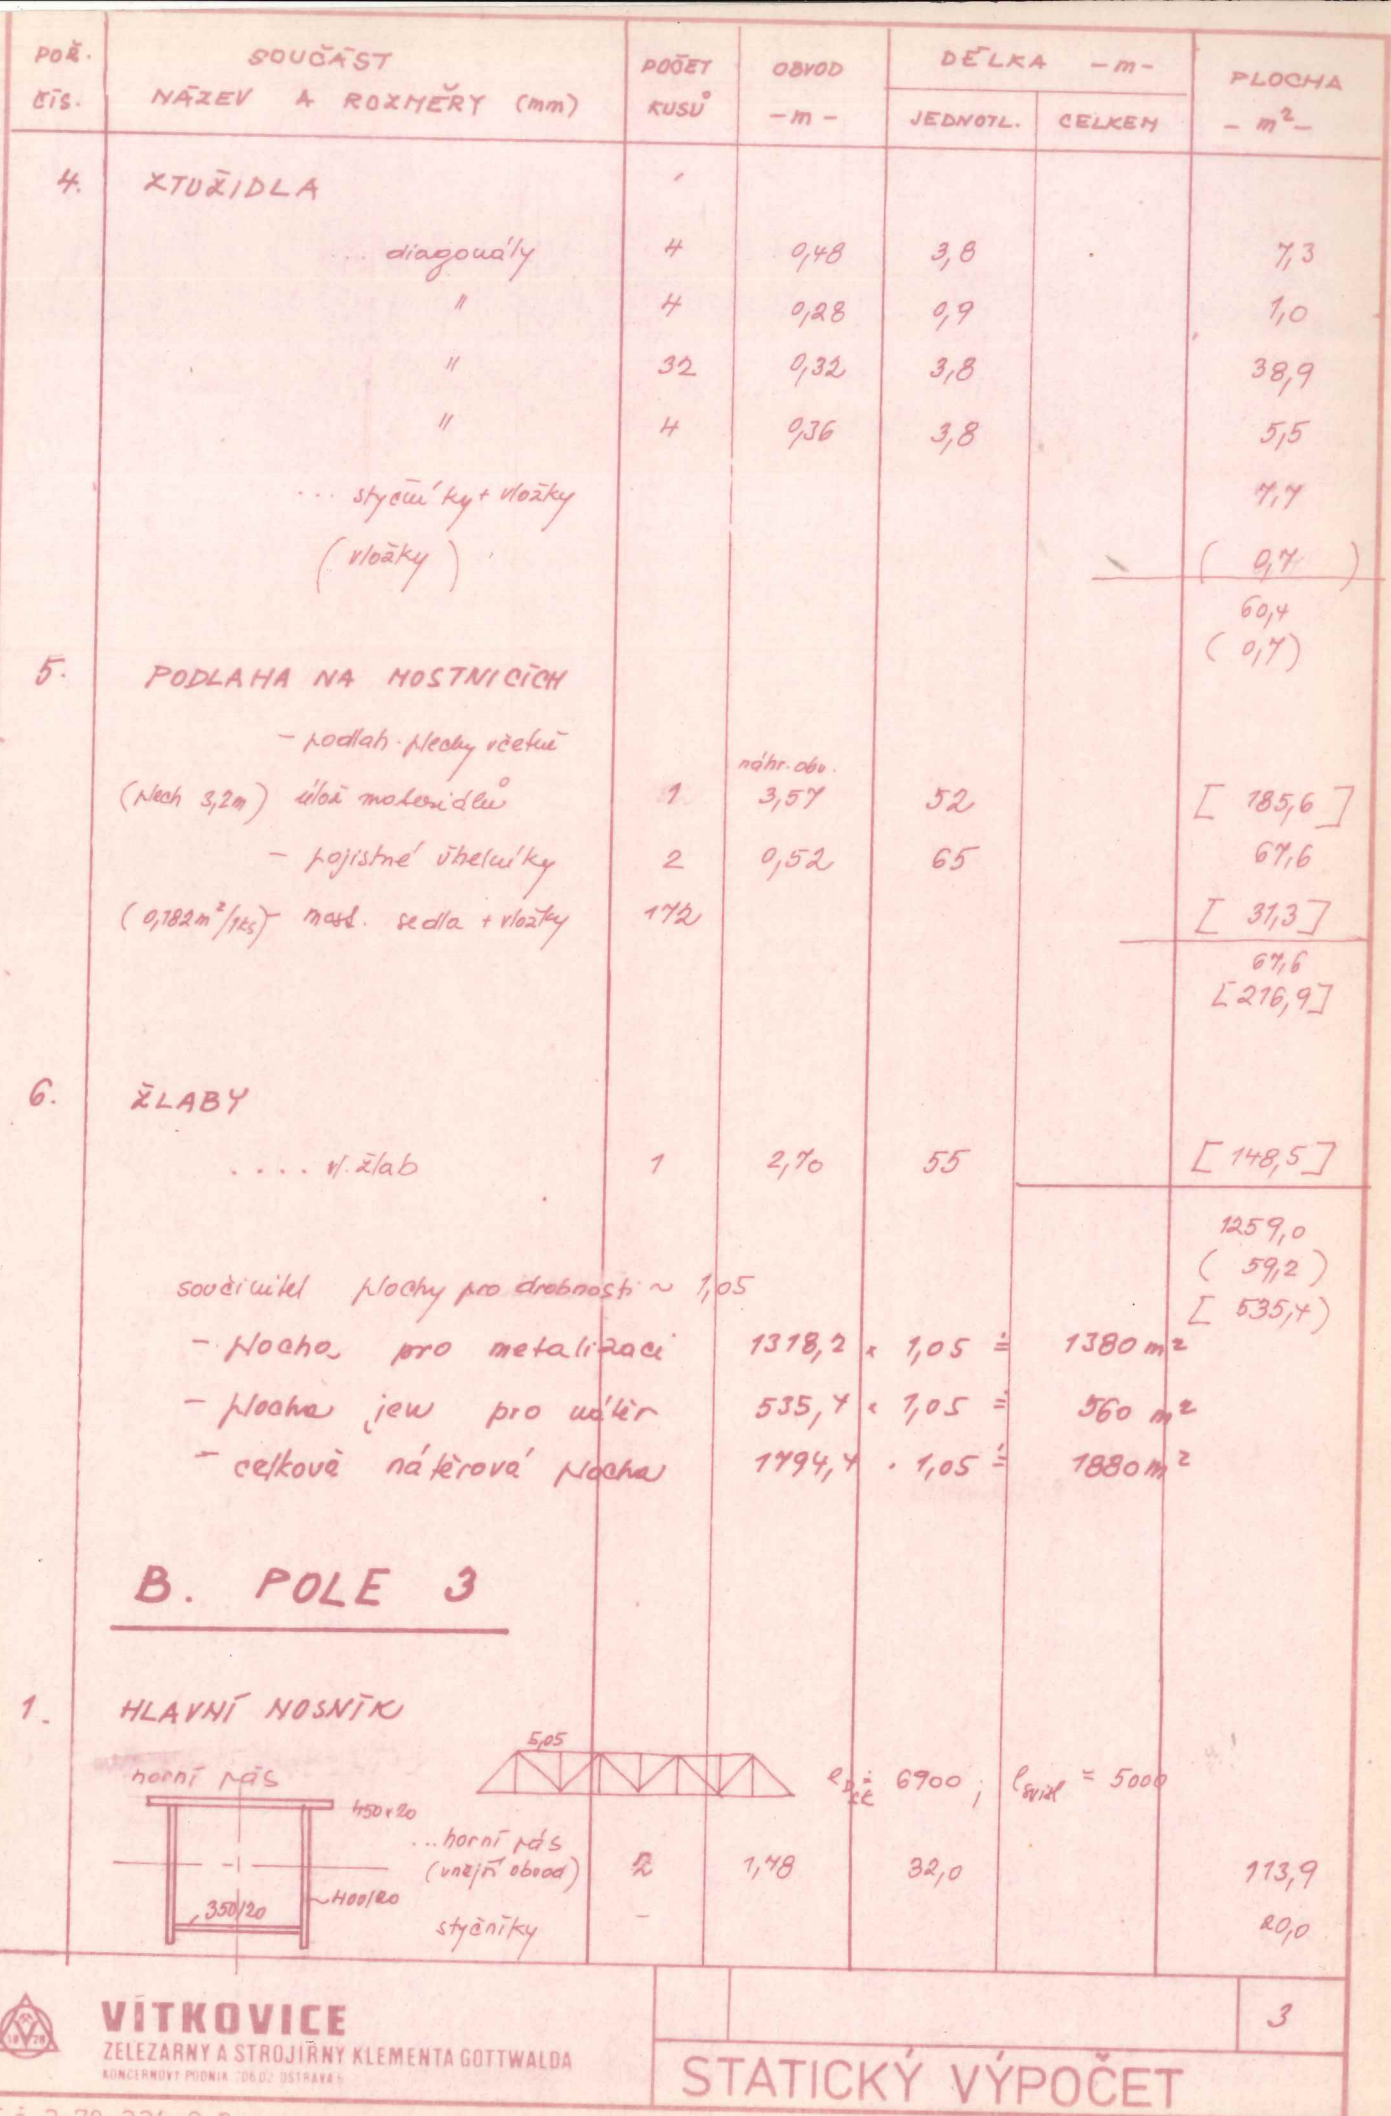 POŘ. SOUČÁST POČET OBVOD DÉLKA -m- PLOCHA
ČÍS. NÁZEV A ROZMĚRY (mm) KUSŮ -m- JEDNOTL. CELKEM -m²-
4. ZTUŽIDLA
... diagonály 4 0,48 3,8 7,3
" 4 0,28 0,9 1,0
" 32 0,32 3,8 38,9
" 4 0,36 3,8 5,5
... styčníky + vložky 7,7
(vložky) (0,7)
60,4
(0,7)
5. PODLAHA NA MOSTNICÍCH
- podlah. plechy včetně
náhr. obv.
(plech 3,2m) úlož 1 3,57 52 [185,6]
- pojistné úhelníky 2 0,52 65 67,6
(0,182m²/1ks) - most. sedla + vložky 172 [31,3]
67,6
[216,9]
6. ŽLABY
.... vl. žlab 1 2,70 55 [148,5]
1259,0
(59,2)
součinitel plochy pro drobnosti ~ 1,05
[535,4)
- plocha pro metalizaci 1318,2 × 1,05 ≐ 1380 m²
- plocha jen pro nátěr 535,4 × 1,05 ≐ 560 m²
- celková nátěrová plocha 1794,4 · 1,05 ≐ 1880 m²
B. POLE 3
1. HLAVNÍ NOSNÍK
5,05
horní pás 6900 ; ℓsvisl = 5000
450×20
... horní pás
(vnější obvod) 2 1,78 32,0 113,9
400/20
350/20
styčníky - 20,0
VÍTKOVICE
ŽELEZÁRNY A STROJÍRNY KLEMENTA GOTTWALDA
KONCERNOVÝ PODNIK 706 02 OSTRAVA 6
3
STATICKÝ VÝPOČET